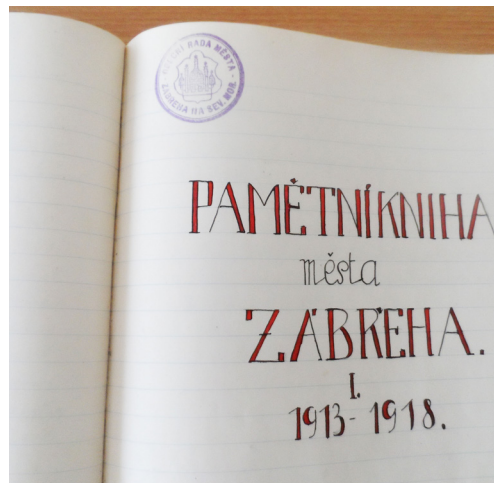 RADA MĚSTA - ZÁBŘEHA NA SEV. MOR.
PAMĚTNÍ KNIHA
města
ZÁBŘEHA.
I.
1913-1918.